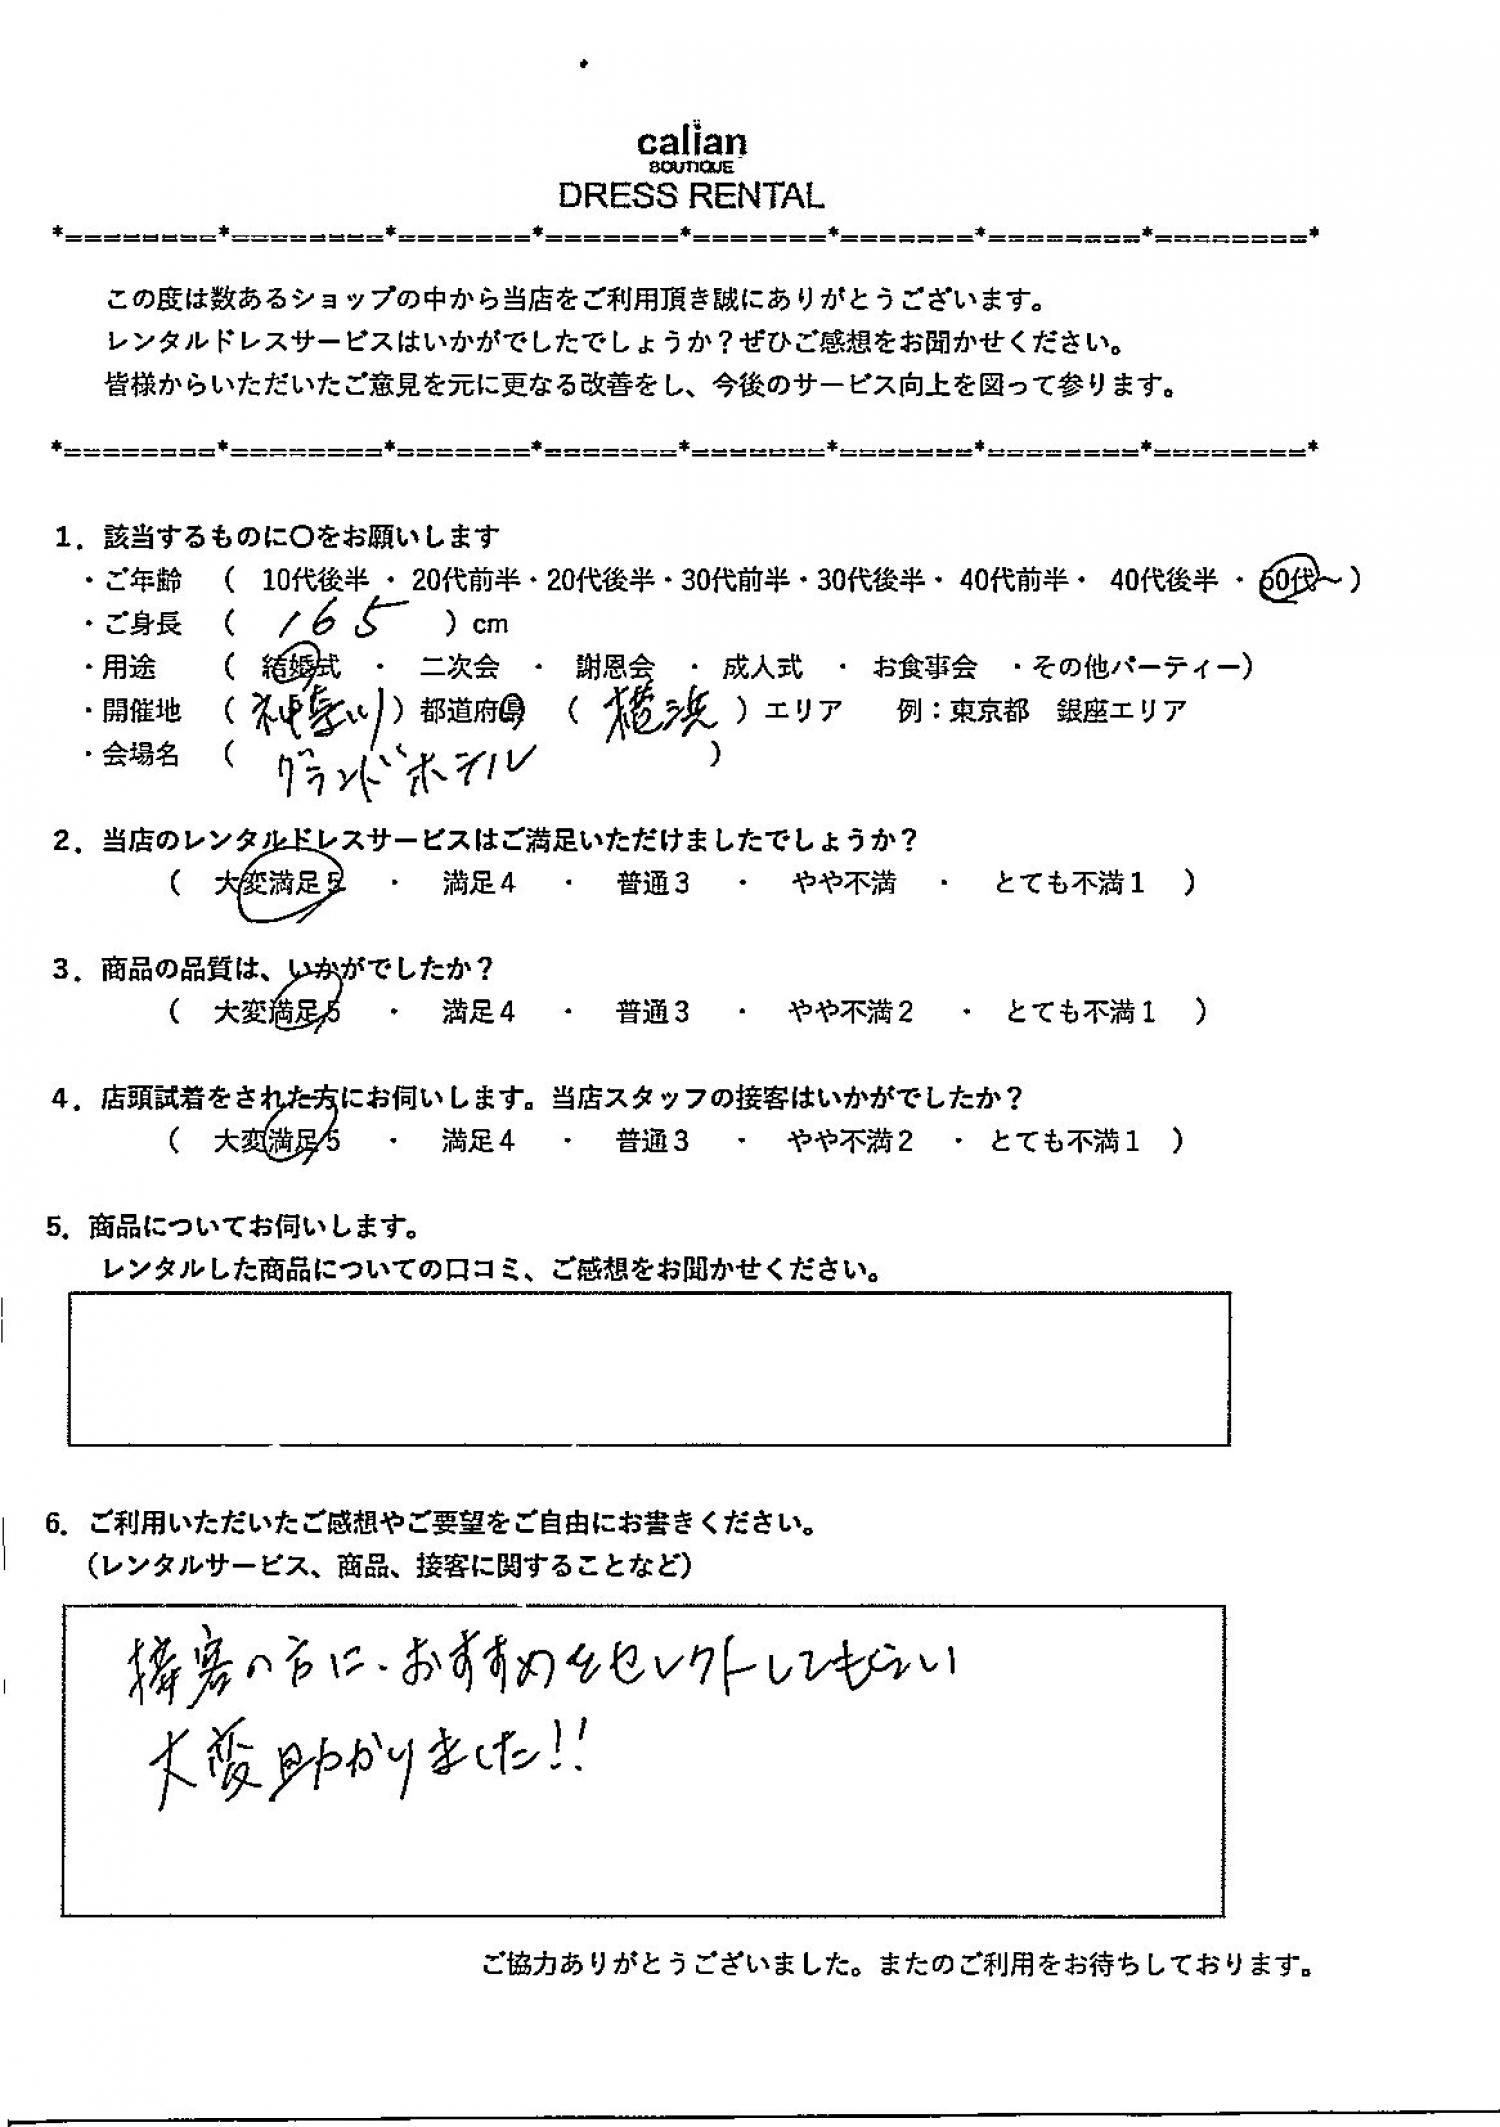 calian
BOUTIQUE
DRESS RENTAL
*========*========*=======*=======*=======*=======*========*========*
この度は数あるショップの中から当店をご利用頂き誠にありがとうございます。
レンタルドレスサービスはいかがでしたでしょうか？ぜひご感想をお聞かせください。
皆様からいただいたご意見を元に更なる改善をし、今後のサービス向上を図って参ります。
*========*========*=======*=======*=======*=======*========*========*
1．該当するものに〇をお願いします
・ご年齢 （ 10代後半 ・ 20代前半・20代後半・30代前半・30代後半・ 40代前半・ 40代後半 ・ 50代～ ）
・ご身長 （ 165 ）cm
・用途 （ 結婚式 ・ 二次会 ・ 謝恩会 ・ 成人式 ・ お食事会 ・その他パーティー）
・開催地 （ 神奈川 ）都道府県 （ 横浜 ）エリア 例：東京都 銀座エリア
・会場名 （ グランドホテル ）
2．当店のレンタルドレスサービスはご満足いただけましたでしょうか？
（ 大変満足5 ・ 満足4 ・ 普通3 ・ やや不満 ・ とても不満1 ）
3．商品の品質は、いかがでしたか？
（ 大変満足5 ・ 満足4 ・ 普通3 ・ やや不満2 ・ とても不満1 ）
4．店頭試着をされた方にお伺いします。当店スタッフの接客はいかがでしたか？
（ 大変満足5 ・ 満足4 ・ 普通3 ・ やや不満2 ・ とても不満1 ）
5．商品についてお伺いします。
レンタルした商品についての口コミ、ご感想をお聞かせください。
6．ご利用いただいたご感想やご要望をご自由にお書きください。
（レンタルサービス、商品、接客に関することなど）
接客の方に、おすすめをセレクトしてもらい
大変助かりました!!
ご協力ありがとうございました。またのご利用をお待ちしております。